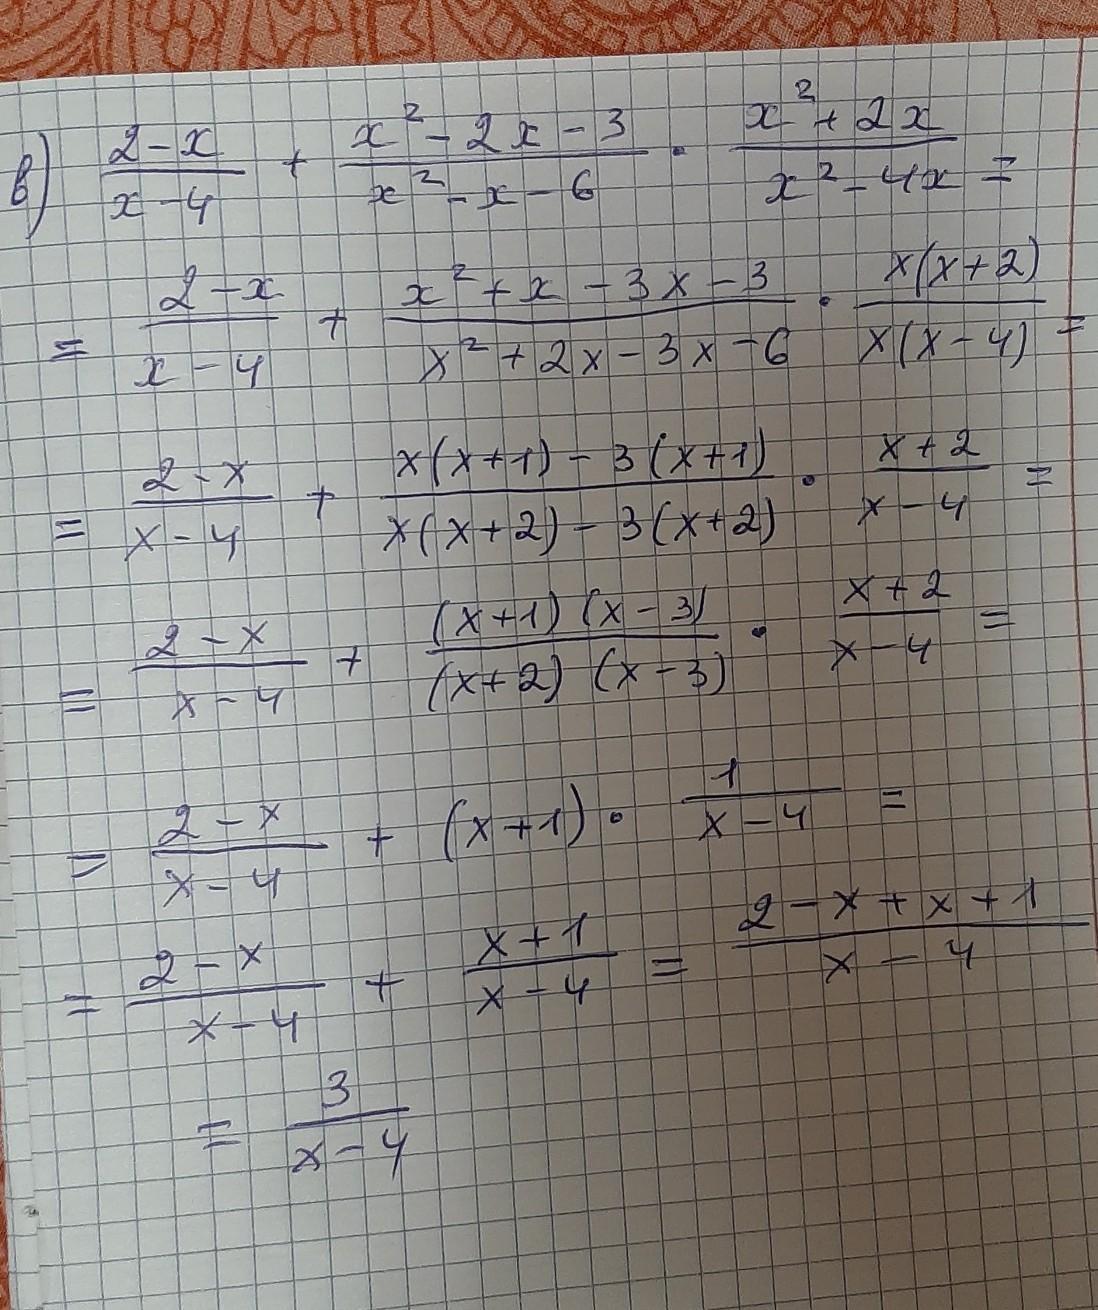 в) (2-x)/(x-4) + (x²-2x-3)/(x²-x-6) · (x²+2x)/(x²-4x) =
= (2-x)/(x-4) + (x²+x-3x-3)/(x²+2x-3x-6) · (x(x+2))/(x(x-4)) =
= (2-x)/(x-4) + (x(x+1)-3(x+1))/(x(x+2)-3(x+2)) · (x+2)/(x-4) =
= (2-x)/(x-4) + ((x+1)(x-3))/((x+2)(x-3)) · (x+2)/(x-4) =
= (2-x)/(x-4) + (x+1) · 1/(x-4) =
= (2-x)/(x-4) + (x+1)/(x-4) = (2-x+x+1)/(x-4)
= 3/(x-4)